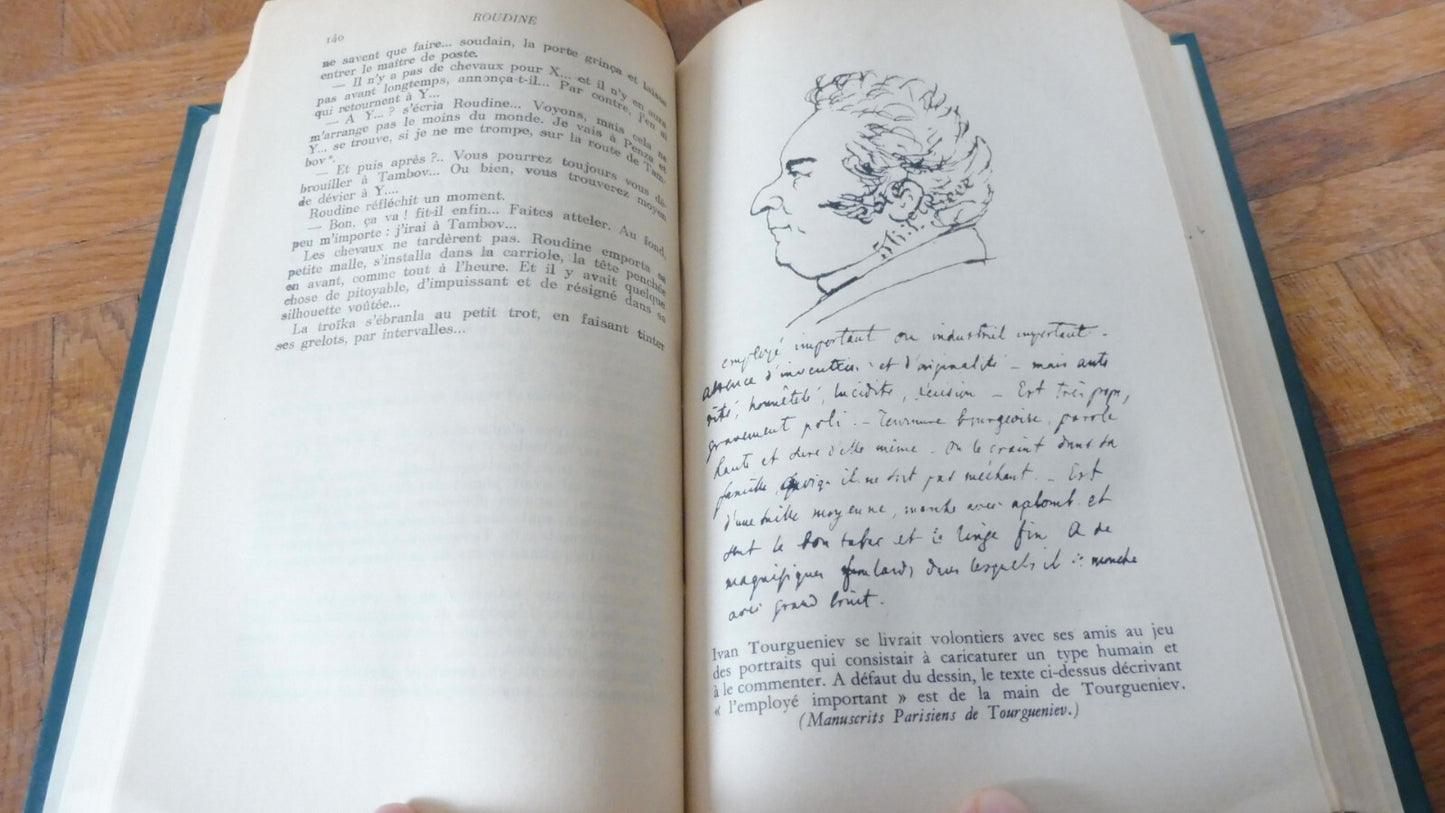 140
ROUDINE
ne savent que faire... soudain, la porte grinça et laissa
entrer le maître de poste.
— Il n'y a pas de chevaux pour X... et il n'y en aura
pas avant longtemps, annonça-t-il... Par contre, j'en ai
qui retournent à Y...
— A Y... ? s'écria Roudine... Voyons, mais cela ne
m'arrange pas le moins du monde. Je vais à Penza et
Y... se trouve, si je ne me trompe, sur la route de Tam-
bov*.
— Et puis après ?.. Vous pourrez toujours vous dé-
brouiller à Tambov... Ou bien, vous trouverez moyen
de dévier à Y....
Roudine réfléchit un moment.
— Bon, ça va ! fit-il enfin... Faites atteler. Au fond,
peu m'importe : j'irai à Tambov...
Les chevaux ne tardèrent pas. Roudine emporta sa
petite malle, s'installa dans la carriole, la tête penchée
en avant, comme tout à l'heure. Et il y avait quelque
chose de pitoyable, d'impuissant et de résigné dans sa
silhouette voûtée...
La troïka s'ébranla au petit trot, en faisant tinter
ses grelots, par intervalles...
employé important ou industriel important —
absence d'invention et d'originalité — mais acti
vité, honnêteté, lucidité, — Est très propre,
gravement poli. — Tournure bourgeoise, parole
haute et sûre d'elle même. On le craint dans sa
famille quoiqu'il ne soit pas méchant. — Est
d'une taille moyenne, marche avec aplomb et
sent le bon tabac et le linge fin A de
magnifiques foulards dans lesquels il se mouche
avec grand bruit.
Ivan Tourgueniev se livrait volontiers avec ses amis au jeu
des portraits qui consistait à caricaturer un type humain et
à le commenter. A défaut du dessin, le texte ci-dessus décrivant
« l'employé important » est de la main de Tourgueniev.
(Manuscrits Parisiens de Tourgueniev.)